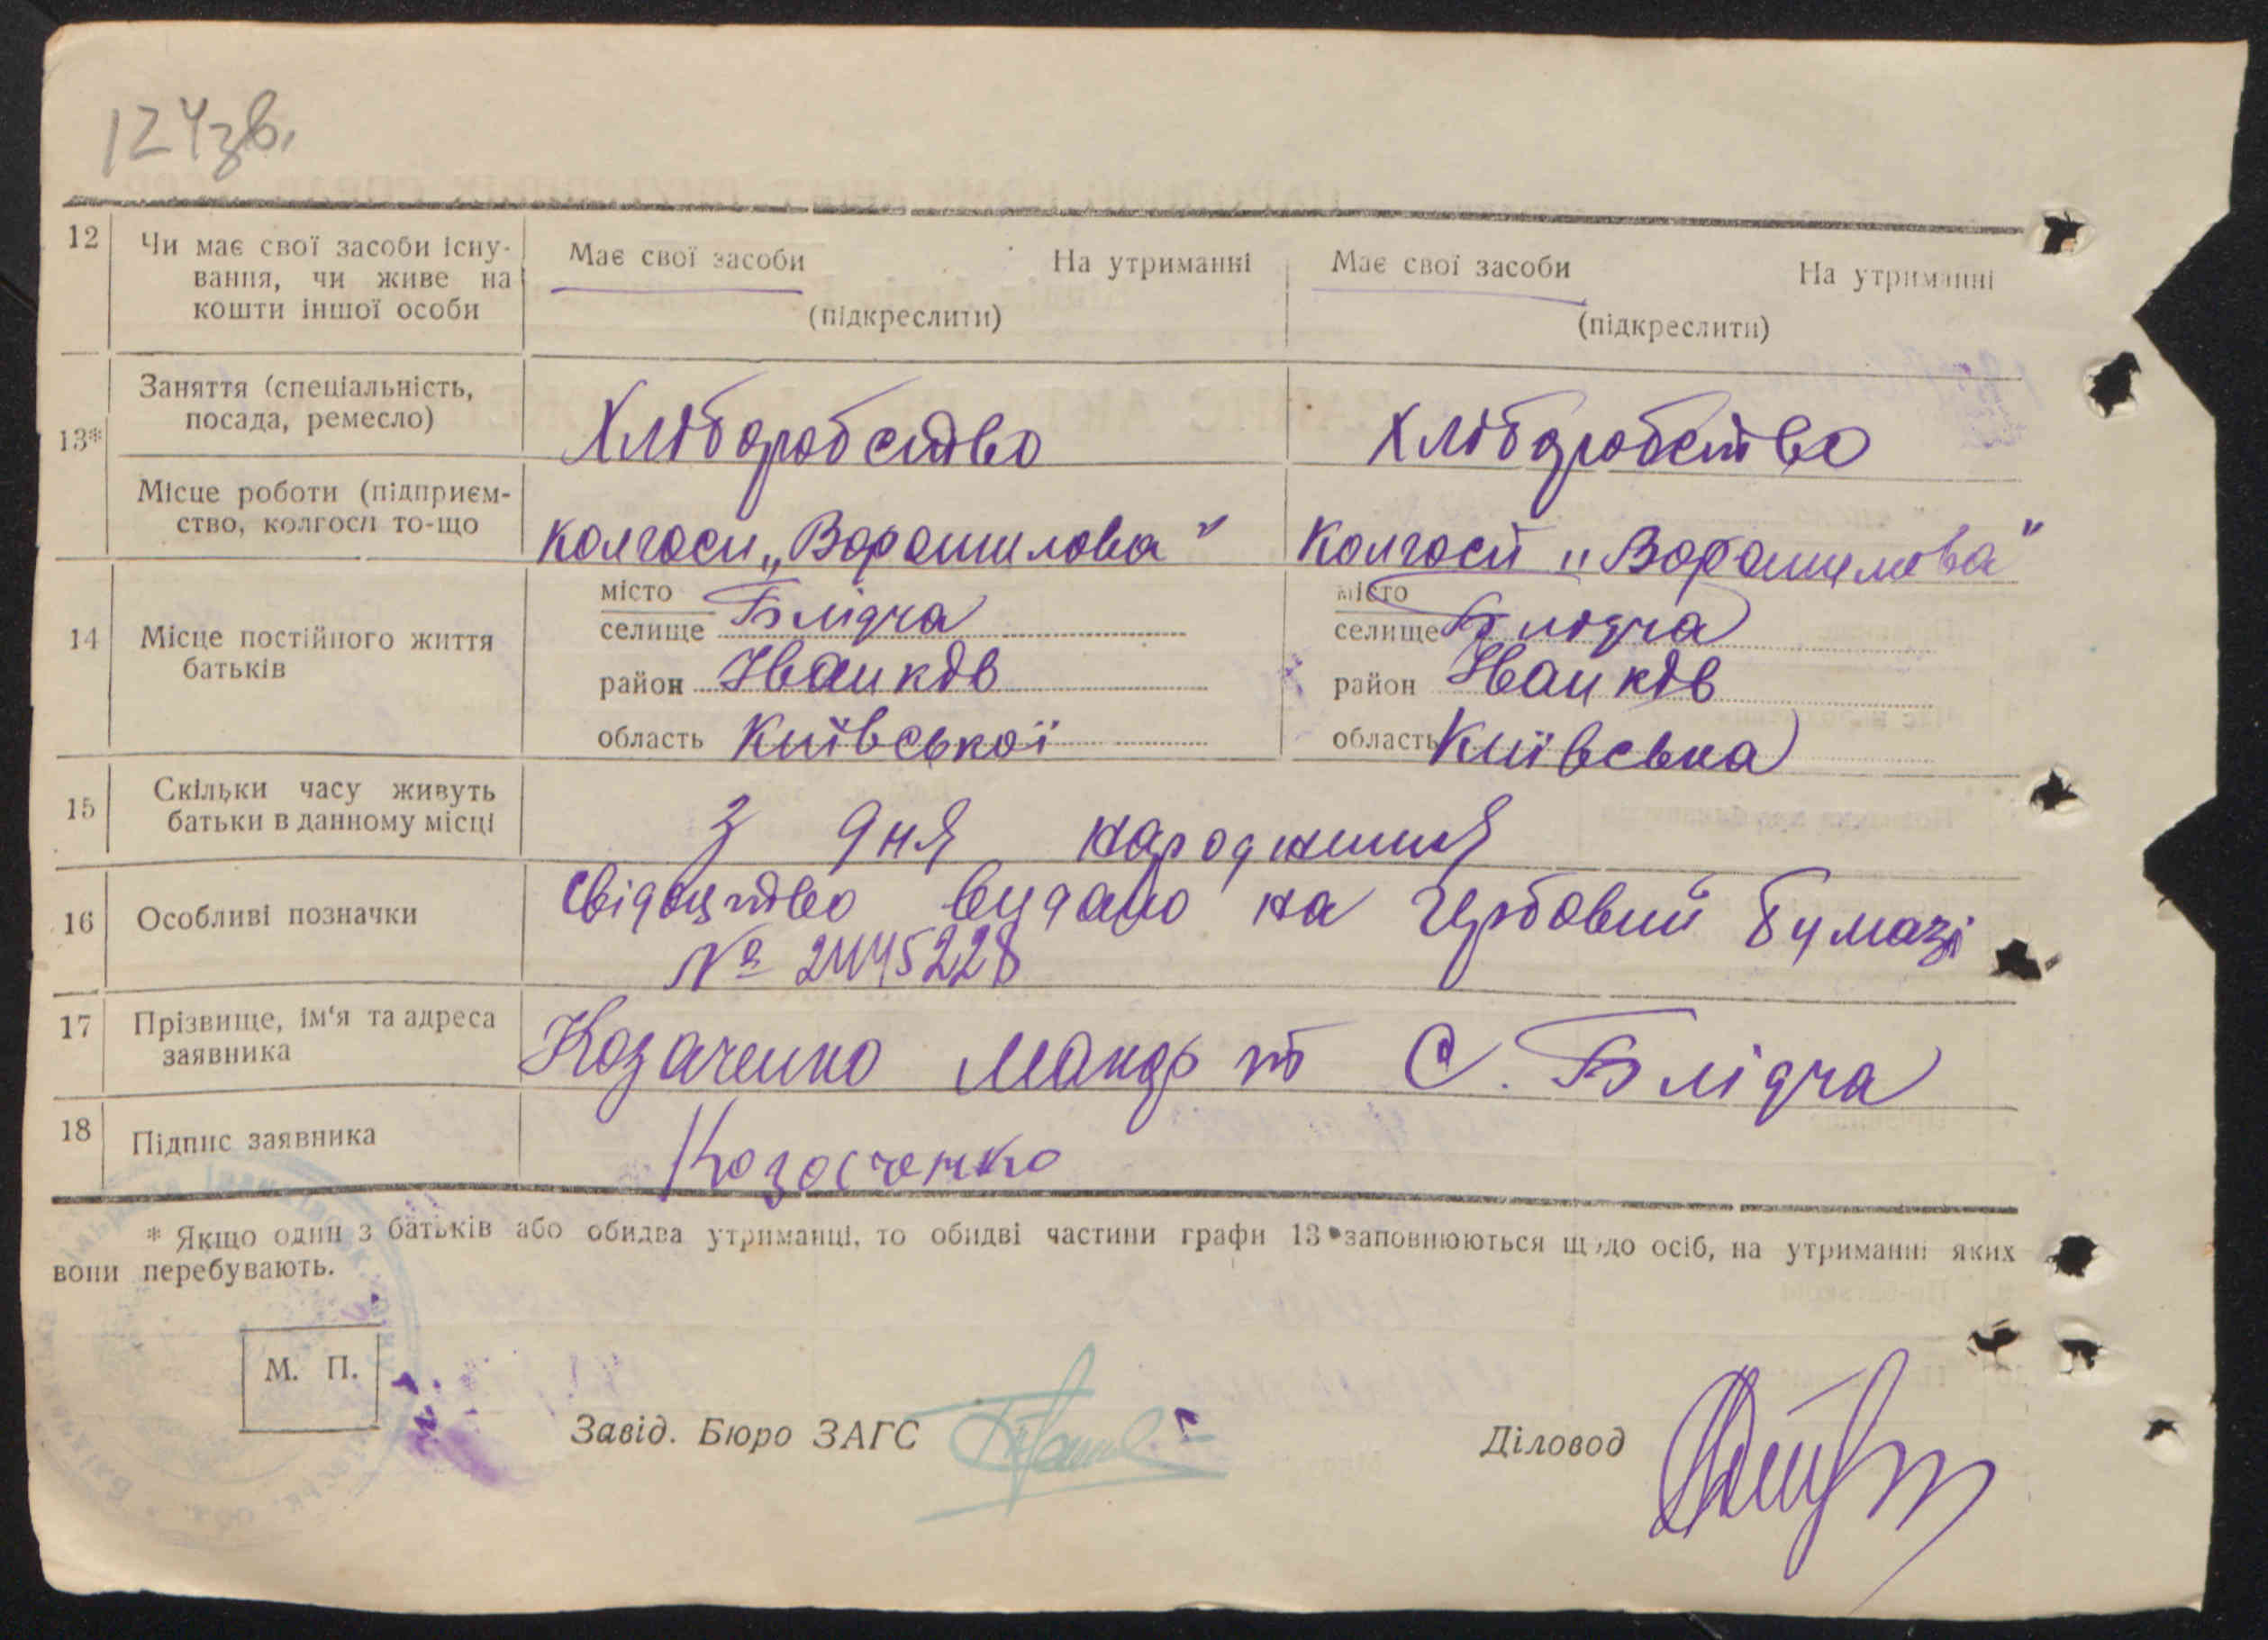 124зв.
12 Чи має свої засоби існу- Має свої засоби На утриманні Має свої засоби На утриманні
вання, чи живе на
кошти іншої особи (підкреслити) (підкреслити)
13* Заняття (спеціальність,
посада, ремесло) Хліборобство Хліборобство
Місце роботи (підприєм-
ство, колгосп то-що колгосп „Ворошилова" Колгосп „Ворошилова"
14 Місце постійного життя
батьків
місто
селище Блідча
район Іванків
область Київської
місто
селище Блідча
район Іванків
область Київська
15 Скільки часу живуть
батьки в данному місці з дня народження
16 Особливі позначки свідоцтво видано на гербовий бумазі
№ 2445228
17 Прізвище, ім'я та адреса
заявника Козаченко С. Блідча
18 Підпис заявника Козаченко
* Якщо один з батьків або обидва утриманці, то обидві частини графи 13 заповнюються щодо осіб, на утриманні яких
вони перебувають.
М. П.
Завід. Бюро ЗАГС Діловод